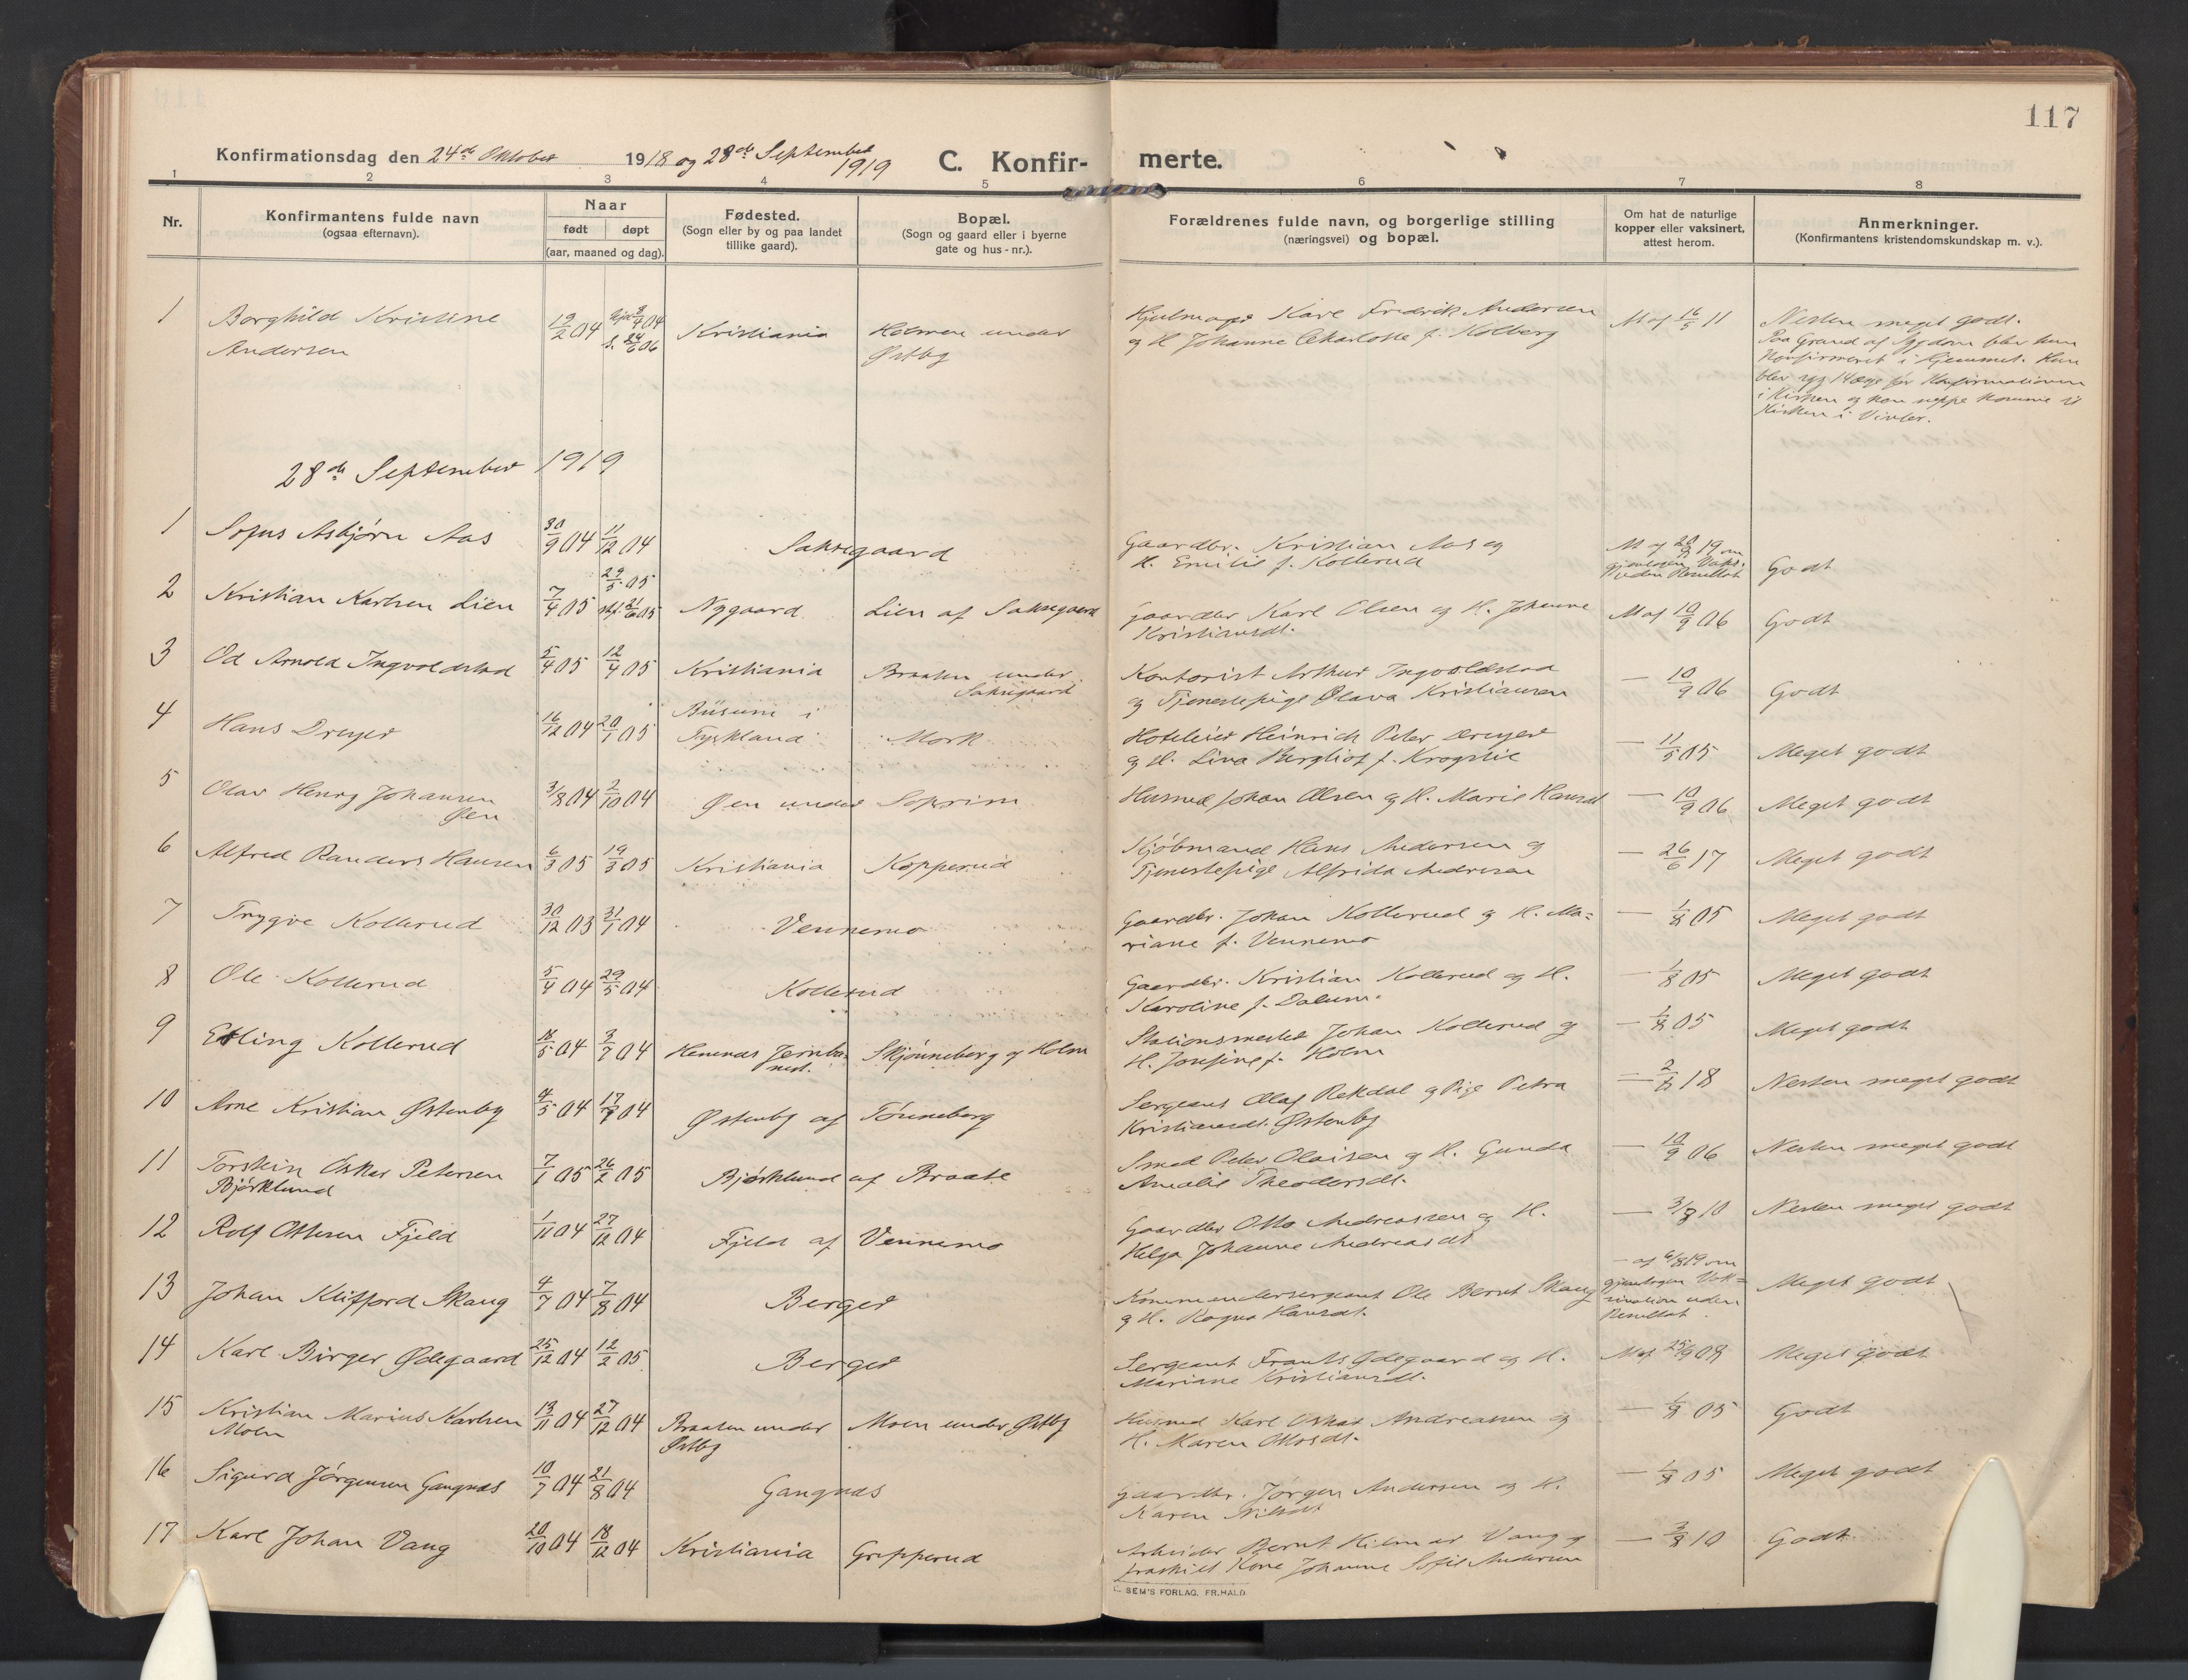 117
Konfirmationsdag den 24de Oktober 1918 og 28de September 1919
C. Konfir- merte.
1 2 3 4 5 6 7 8
Nr.
Konfirmantens fulde navn
(ogsaa efternavn).
Naar
født døpt
(aar, maaned og dag).
Fødested.
(Sogn eller by og paa landet
tillike gaard).
Bopæl.
(Sogn og gaard eller i byerne
gate og hus-nr.).
Forældrenes fulde navn, og borgerlige stilling
(næringsvei) og bopæl.
Om hat de naturlige
kopper eller vaksinert,
attest herom.
Anmerkninger.
(Konfirmantens kristendomskundskap m. v.).
1 Borghild Kristine
Andersen
19/2 04
Kristiania
Holmen under
Østby
Karl Fredrik Andersen
og H. Johanne Charlotte f. Kolberg
Nesten meget godt.
Paa Grund af Sygdom blev hun
konfirmeret i Hjemmet. Hun
blev syg 14 dage før Konfirmationen
i Kirken og kan neppe komme til
Kirken i Vinter.
28de September 1919
1 Sofus Asbjørn Aas 30/9 04 11/12 04 Saksegaard
Gaardbr. Kristian Aas og
H. Emilie f. Kollerud
Godt
2 Kristian Karlsen Lien 7/4 05 29/5 05 Nygaard Lien af Saksegaard
Gaardbr Karl Olsen og H. Johanne
Kristiansdt.
M af 10/9 06 Godt
3 Od Arnold Ingvoldstad 5/4 05 12/4 05 Kristiania Braaten under
Saksegaard
Kontorist Arthur Ingvoldstad
og Tjenestepige Olava Kristiansen
— 10/9 06 Godt
4 Hans Dreyer 16/12 04 20/1 05 Büsum i
Tyskland Mork
Hoteleier Heinrich Peter Dreyer
og H. Lina Bergliot f. Krogslie
— 11/5 05 Meget godt
5 Olav Henry Johansen
Øen
3/8 04 2/10 04 Øen under Soprim
Husmd Johan Olsen og H. Marie Hansdt
— 10/9 06 Meget godt
6 Alfred Randers Hansen 6/3 05 19/3 05 Kristiania Kopperud
Kjøbmand Hans Andersen og
Tjenestepige Alfrida Andresen
— 26/6 17 Meget godt
7 Trygve Kollerud 30/12 03 31/1 04 Vennemo
Gaardbr. Johan Kollerud og H. Ma=
riane f. Vennemo
— 1/8 05 Meget godt
8 Ole Kollerud 5/4 04 29/5 04 Kollerud
Gaardbr. Kristian Kollerud og H.
Karoline f. Dalum.
— 1/8 05 Meget godt
9 Erling Kollerud 16/5 04 3/7 04 Skjønneberg og Holm
Stationsmester Johan Kollerud og
H. Josefine f. Holm
— 1/8 05 Meget godt
10 Arne Kristian Østenby 4/5 04 17/7 04 Østenby af Tønneberg
Sergeant Olaf Rekdal og Pige Petra
Kristiansdt. Østenby
— 2/8 18 Nesten meget godt
11 Torstein Oskar Petersen
Bjørklund
7/1 05 26/2 05 Bjørklund af Braate
Smed Peter Olaisen og H. Gunda
Amalie Theodorsdt.
— 10/9 06 Nesten meget godt
12 Rolf Ottesen Fjeld 1/11 04 27/12 04 Fjeld af Vennemo
Gaardbr Otto Andreassen og H.
Helga Johanne Andreasdt
— 3/8 10 Nesten meget godt
13 Johan Klifford Skaug 4/7 04 7/8 04 Berger
Kommandersergeant Ole Bernt Skaug
og H. Ragna Hansdt.
— af 6/8 19 om
gjentagen Vak=
sination uden
Resultat
Meget godt
14 Karl Birger Ødegaard 25/12 04 12/2 05 Berger
Sergeant Frants Ødegaard og H.
Mariane Kristiansdt.
M af 25/9 08 Meget godt
15 Kristian Marius Karlsen
Moen
13/11 04 27/12 04 Braaten under
Østby
Moen under Østby
Husmd Karl Oskar Andreassen og
H. Maren Ottosdt.
— 1/8 05 Godt
16 Sigurd Jørgensen Gangnæs 10/7 04 21/8 04 Gangnæs
Gaardbr. Jørgen Andersen og H.
Karen Nilsdt
— 1/8 05 Meget godt
17 Karl Johan Vang 20/10 04 18/12 04 Kristiania Gropperud
Arbeider Bernt Hilmar Vang og
fraskilt Kone Johanne Sofie Andersen
— 3/8 10 Godt
SEM'S FORLAG. FR. HALD.